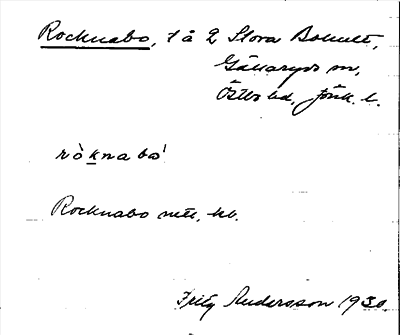 Rocknabo, 1 å 2 Stora Bohult,
Gällaryds sn,
Östbo hd, Jönk. l.
rò̀knabo'
Rocknabo mtl, kb.
Fritz Andersson 1930.